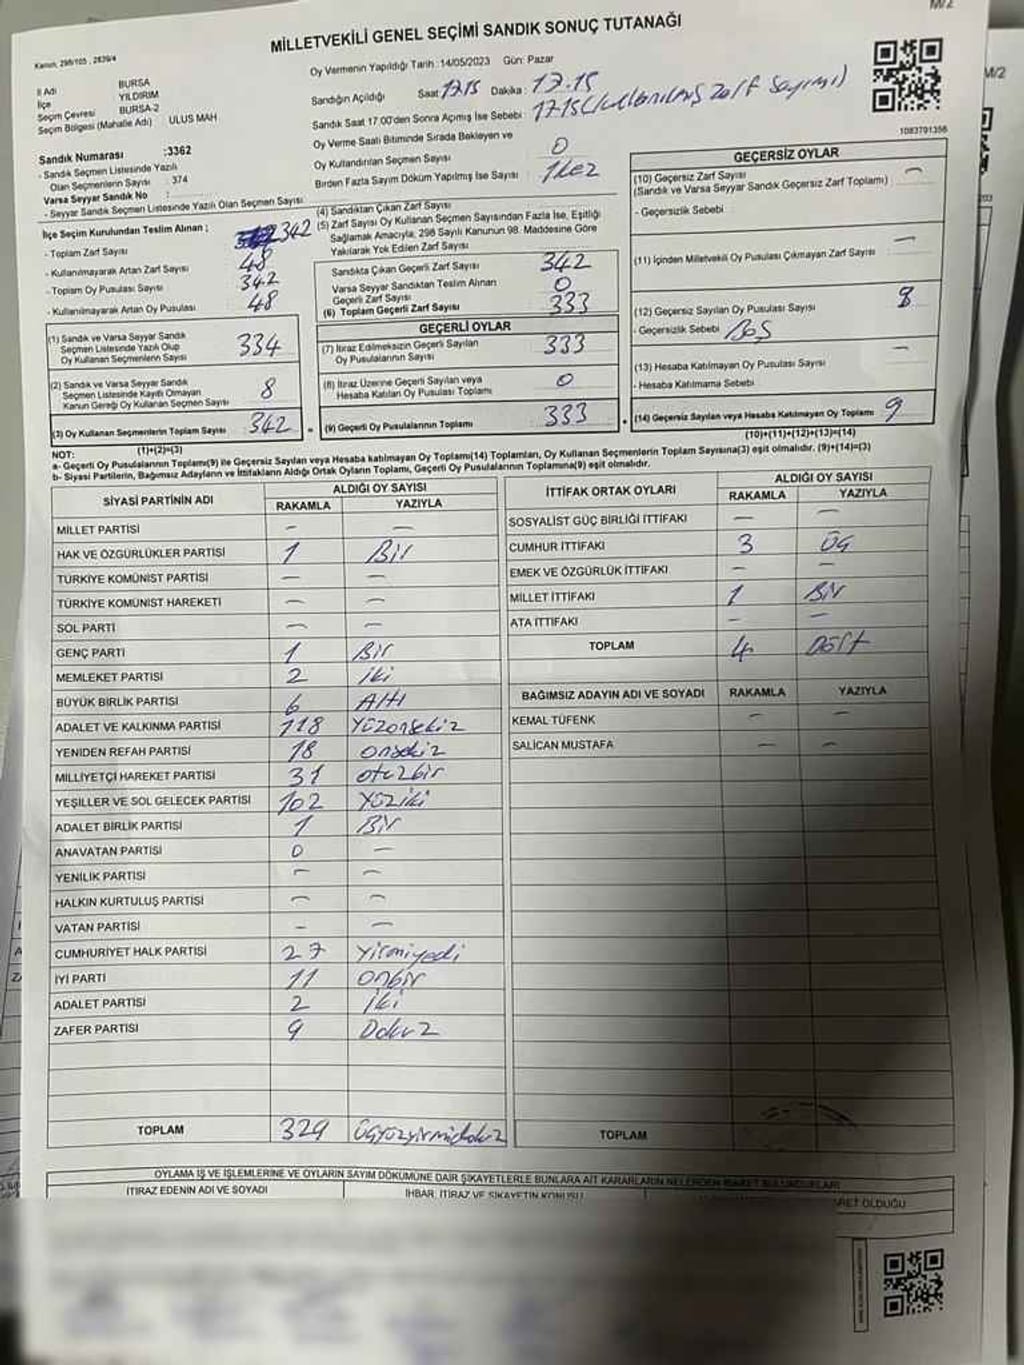 M/2
MİLLETVEKİLİ GENEL SEÇİMİ SANDIK SONUÇ TUTANAĞI
Kanun, 298/105 , 2839/4
İl Adı BURSA
İlçe YILDIRIM
Seçim Çevresi BURSA-2
Seçim Bölgesi (Mahalle Adı) ULUS MAH
Sandık Numarası :3362
- Sandık Seçmen Listesinde Yazılı
Olan Seçmenlerin Sayısı : 374
Varsa Seyyar Sandık No :
- Seyyar Sandık Seçmen Listesinde Yazılı Olan Seçmen Sayısı
Oy Vermenin Yapıldığı Tarih :14/05/2023 Gün: Pazar
Sandığın Açıldığı Saat 17.15 Dakika : 17.15
Sandık Saat 17.00'den Sonra Açımış İse Sebebi 17.15 (kullanılmış zarf sayımı)
Oy Verme Saati Bitiminde Sırada Bekleyen ve
Oy Kullandırılan Seçmen Sayısı 0
Birden Fazla Sayım Döküm Yapılmış İse Sayısı 1kez
1083791356
İlçe Seçim Kurulundan Teslim Alınan ;
- Toplam Zarf Sayısı 342
- Kullanılmayarak Artan Zarf Sayısı 48
- Toplam Oy Pusulası Sayısı 342
- Kullanılmayarak Artan Oy Pusulası 48
(1) Sandık ve Varsa Seyyar Sandık
Seçmen Listesinde Yazılı Olup
Oy Kullanan Seçmenlerin Sayısı 334
(2) Sandık ve Varsa Seyyar Sandık
Seçmen Listesinde Kayıtlı Olmayan
Kanun Gereği Oy Kullanan Seçmen Sayısı 8
(3) Oy Kullanan Seçmenlerin Toplam Sayısı 342
(1)+(2)=(3)
(4) Sandıktan Çıkan Zarf Sayısı
(5) Zarf Sayısı Oy Kullanan Seçmen Sayısından Fazla İse, Eşitliği
Sağlamak Amacıyla, 298 Sayılı Kanunun 98. Maddesine Göre
Yakılarak Yok Edilen Zarf Sayısı
Sandıkta Çıkan Geçerli Zarf Sayısı 342
Varsa Seyyar Sandıktan Teslim Alınan
Geçerli Zarf Sayısı 0
(6) Toplam Geçerli Zarf Sayısı 333
GEÇERLİ OYLAR
(7) İtiraz Edilmeksizin Geçerli Sayılan
Oy Pusulalarının Sayısı 333
(8) İtiraz Üzerine Geçerli Sayılan veya
Hesaba Katılan Oy Pusulası Toplamı 0
(9) Geçerli Oy Pusulalarının Toplamı 333
GEÇERSİZ OYLAR
(10) Geçersiz Zarf Sayısı —
(Sandık ve Varsa Seyyar Sandık Geçersiz Zarf Toplamı)
- Geçersizlik Sebebi
(11) İçinden Milletvekili Oy Pusulası Çıkmayan Zarf Sayısı —
(12) Geçersiz Sayılan Oy Pusulası Sayısı 8
- Geçersizlik Sebebi Boş
(13) Hesaba Katılmayan Oy Pusulası Sayısı —
- Hesaba Katılmama Sebebi
(14) Geçersiz Sayılan veya Hesaba Katılmayan Oy Toplamı 9
(10)+(11)+(12)+(13)=(14)
NOT:
a- Geçerli Oy Pusulalarının Toplamı(9) ile Geçersiz Sayılan veya Hesaba katılmayan Oy Toplamı(14) Toplamları, Oy Kullanan Seçmenlerin Toplam Sayısına(3) eşit olmalıdır. (9)+(14)=(3)
b- Siyasi Partilerin, Bağımsız Adayların ve İttifakların Aldığı Ortak Oyların Toplamı, Geçerli Oy Pusulalarının Toplamına(9) eşit olmalıdır.
SİYASİ PARTİNİN ADI ALDIĞI OY SAYISI
RAKAMLA YAZIYLA
MİLLET PARTİSİ — —
HAK VE ÖZGÜRLÜKLER PARTİSİ 1 Bir
TÜRKİYE KOMÜNİST PARTİSİ — —
TÜRKİYE KOMÜNİST HAREKETİ — —
SOL PARTİ — —
GENÇ PARTİ 1 Bir
MEMLEKET PARTİSİ 2 iki
BÜYÜK BİRLİK PARTİSİ 6 Altı
ADALET VE KALKINMA PARTİSİ 118 Yüzonsekiz
YENİDEN REFAH PARTİSİ 18 onsekiz
MİLLİYETÇİ HAREKET PARTİSİ 31 otuzbir
YEŞİLLER VE SOL GELECEK PARTİSİ 102 Yüziki
ADALET BİRLİK PARTİSİ 1 Bir
ANAVATAN PARTİSİ 0 —
YENİLİK PARTİSİ — —
HALKIN KURTULUŞ PARTİSİ — —
VATAN PARTİSİ - —
CUMHURİYET HALK PARTİSİ 27 Yirmiyedi
İYİ PARTİ 11 Onbir
ADALET PARTİSİ 2 iki
ZAFER PARTİSİ 9 Dokuz
TOPLAM 329 üçyüzyirmidokuz
İTTİFAK ORTAK OYLARI ALDIĞI OY SAYISI
RAKAMLA YAZIYLA
SOSYALİST GÜÇ BİRLİĞİ İTTİFAKI — —
CUMHUR İTTİFAKI 3 Üç
EMEK VE ÖZGÜRLÜK İTTİFAKI — —
MİLLET İTTİFAKI 1 Bir
ATA İTTİFAKI — —
TOPLAM 4 Dört
BAĞIMSIZ ADAYIN ADI VE SOYADI RAKAMLA YAZIYLA
KEMAL TÜFENK — —
SALİCAN MUSTAFA — —
TOPLAM
OYLAMA İŞ VE İŞLEMLERİNE VE OYLARIN SAYIM DÖKÜMÜNE DAİR ŞİKAYETLERLE BUNLARA AİT KARARLARIN NELERDEN İBARET BULUNDUKLARI
İTİRAZ EDENİN ADI VE SOYADI İHBAR, İTİRAZ VE ŞİKAYETİN KONUSU OLDUĞU
M/2